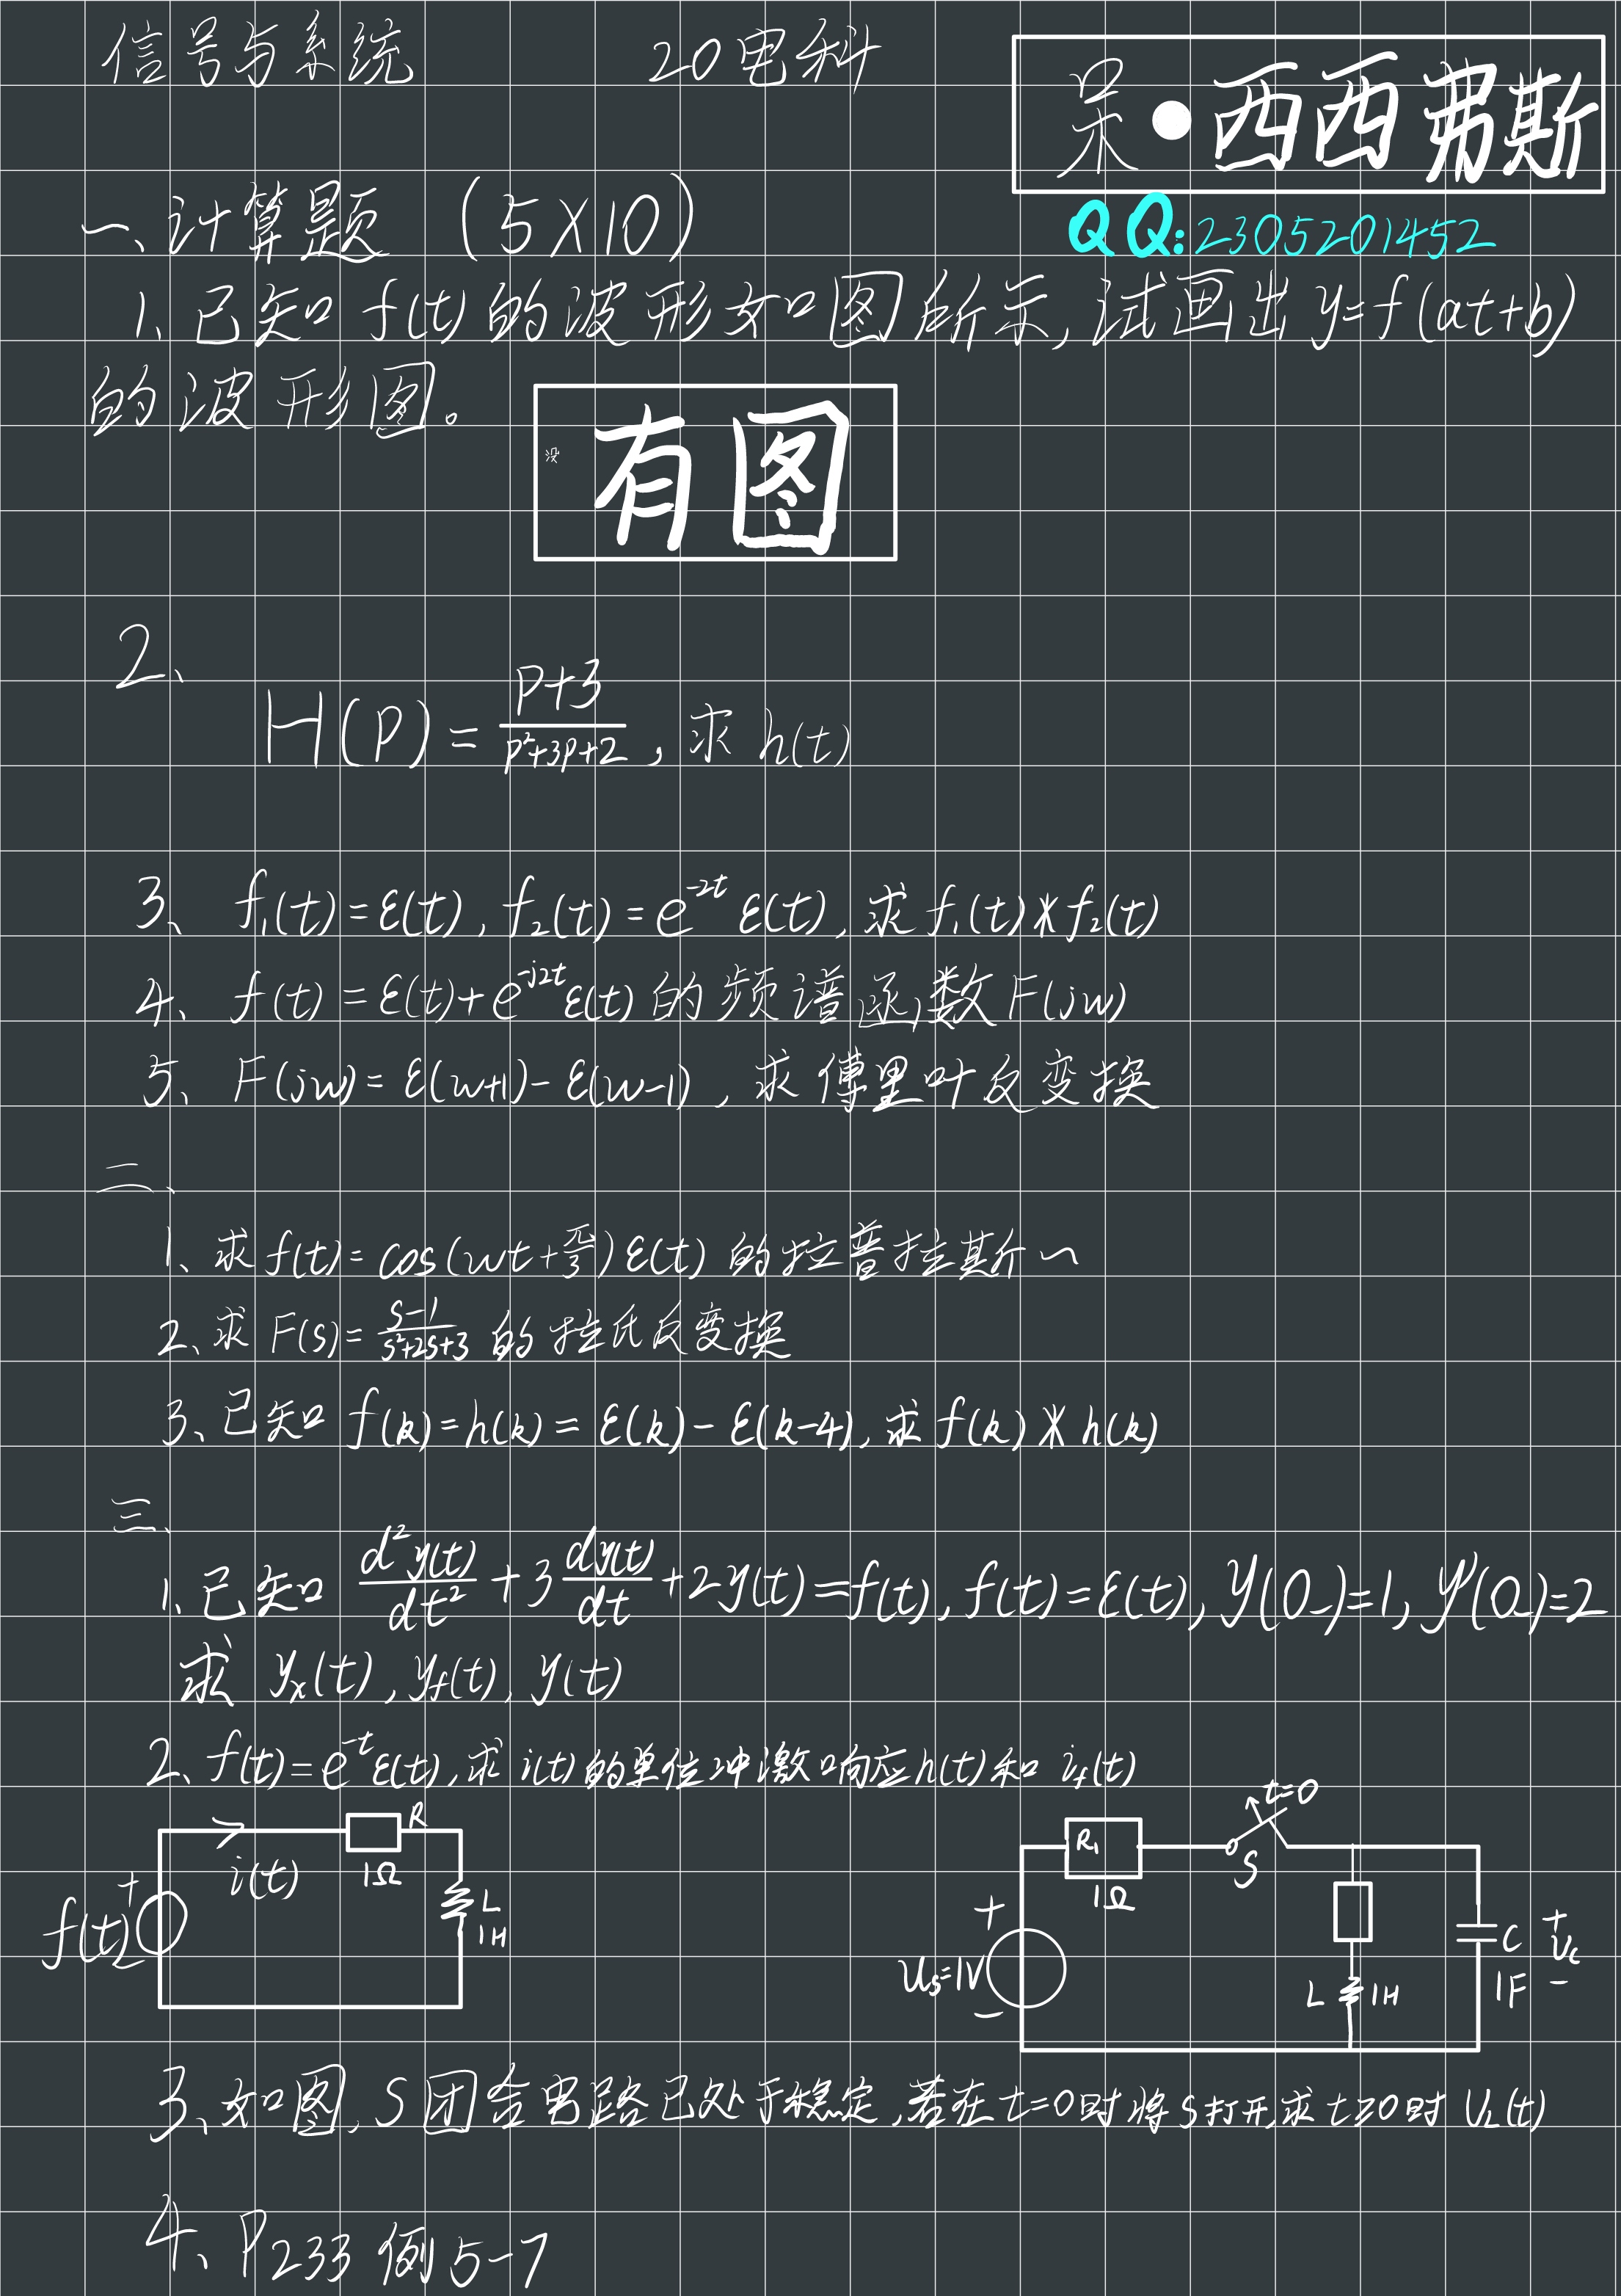 信号与系统 20电科
呆·西西弗斯
QQ:2305201452
一、计算题 (5×10)
1、已知 f(t) 的波形如图所示,试画出 y=f(at+b)
的波形图。
没有图
2、H(P)=\frac{P+3}{P²+3P+2},求 h(t)
3、f₁(t)=ε(t), f₂(t)=e^{-2t}ε(t),求 f₁(t)*f₂(t)
4、f(t)=ε(t)+e^{-j2t}ε(t) 的频谱函数 F(jw)
5、F(jw)=ε(w+1)-ε(w-1),求傅里叶反变换
二、
1、求 f(t)=cos(wt+\frac{π}{3})ε(t) 的拉普拉斯~
2、求 F(s)=\frac{s-1}{s²+2s+3} 的拉氏反变换
3、已知 f(k)=h(k)=ε(k)-ε(k-4),求 f(k)*h(k)
三、
1、已知 \frac{d²y(t)}{dt²}+3\frac{dy(t)}{dt}+2y(t)=f(t), f(t)=ε(t), y(0_)=1, y'(0_)=2
求 yₓ(t), y_f(t), y(t)
2、f(t)=e^{-t}ε(t),求 i(t) 的单位冲激响应 h(t) 和 i_f(t)
f(t) + - i(t) R 1Ω L 1H
Us=1V + - R₁ 1Ω S t=0 L 1H C 1F + Uc -
3、如图,S团合电路已处于稳定,若在t=0时将S打开,求t≥0时 U_L(t)
4、P233 例5-7